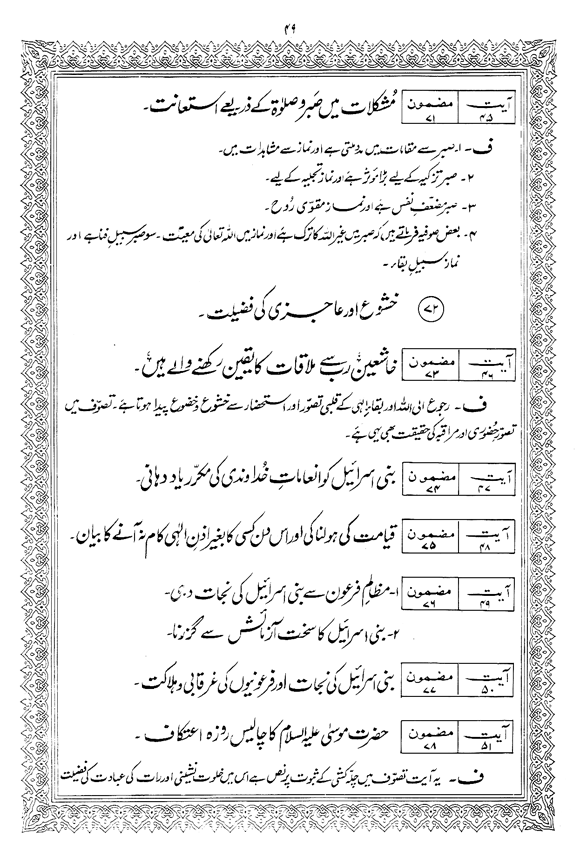 ۴۹
آیت ۴۵ مضمون ۷۱ مُشکلات میں صَبر و صلوٰۃ کے ذریعے استعانت۔
ف - ۱۔ صبر سے مقامات میں مدد ملتی ہے اور نماز سے مشاہدات میں۔
۲۔ صبر تزکیہ کے لیے بڑا مؤثر ہے اور نماز تجلیہ کے لیے۔
۳۔ صبر مضعفِ نفس ہے اور نماز مقوّی رُوح۔
۴۔ بعض صوفیہ فرماتے ہیں کہ صبر میں غیر اللہ کا ترک ہے اور نماز میں اللہ تعالیٰ کی معیّت۔ سو صبر سبیلِ فنا ہے اور
نماز سبیلِ بقاء۔
۷۲ خشوع اور عاجزی کی فضیلت۔
آیت ۴۶ مضمون ۷۳ خاشعین، رب سے ملاقات کا یقین رکھنے والے ہیں۔
ف - رجوع الی اللہ اور لقاءِ الٰہی کے قلبی تصوّر اور استحضار سے خشوع و خضوع پیدا ہوتا ہے۔ تصوّف میں
تصوّرِ حضوری اور مراقبہ کی حقیقت بھی یہی ہے۔
آیت ۴۷ مضمون ۷۴ بنی اسرائیل کو انعاماتِ خُداوندی کی مکرّر یاد دہانی۔
آیت ۴۸ مضمون ۷۵ قیامت کی ہولناکی اور اس دن کسی کا بغیر اذنِ الٰہی کام نہ آنے کا بیان۔
آیت ۴۹ مضمون ۷۶ ۱- مظالمِ فرعون سے بنی اسرائیل کی نجات دہی۔
۲- بنی اسرائیل کا سخت آزمائش سے گزرنا۔
آیت ۵۰ مضمون ۷۷ بنی اسرائیل کی نجات اور فرعونیوں کی غرقابی و ہلاکت۔
آیت ۵۱ مضمون ۷۸ حضرت موسیٰ علیہ السلام کا چالیس روزہ اعتکاف۔
ف - یہ آیت تصوّف میں چلّہ کشی کے ثبوت پر نص ہے اس میں خلوت نشینی اور رات کی عبادت کی فضیلت